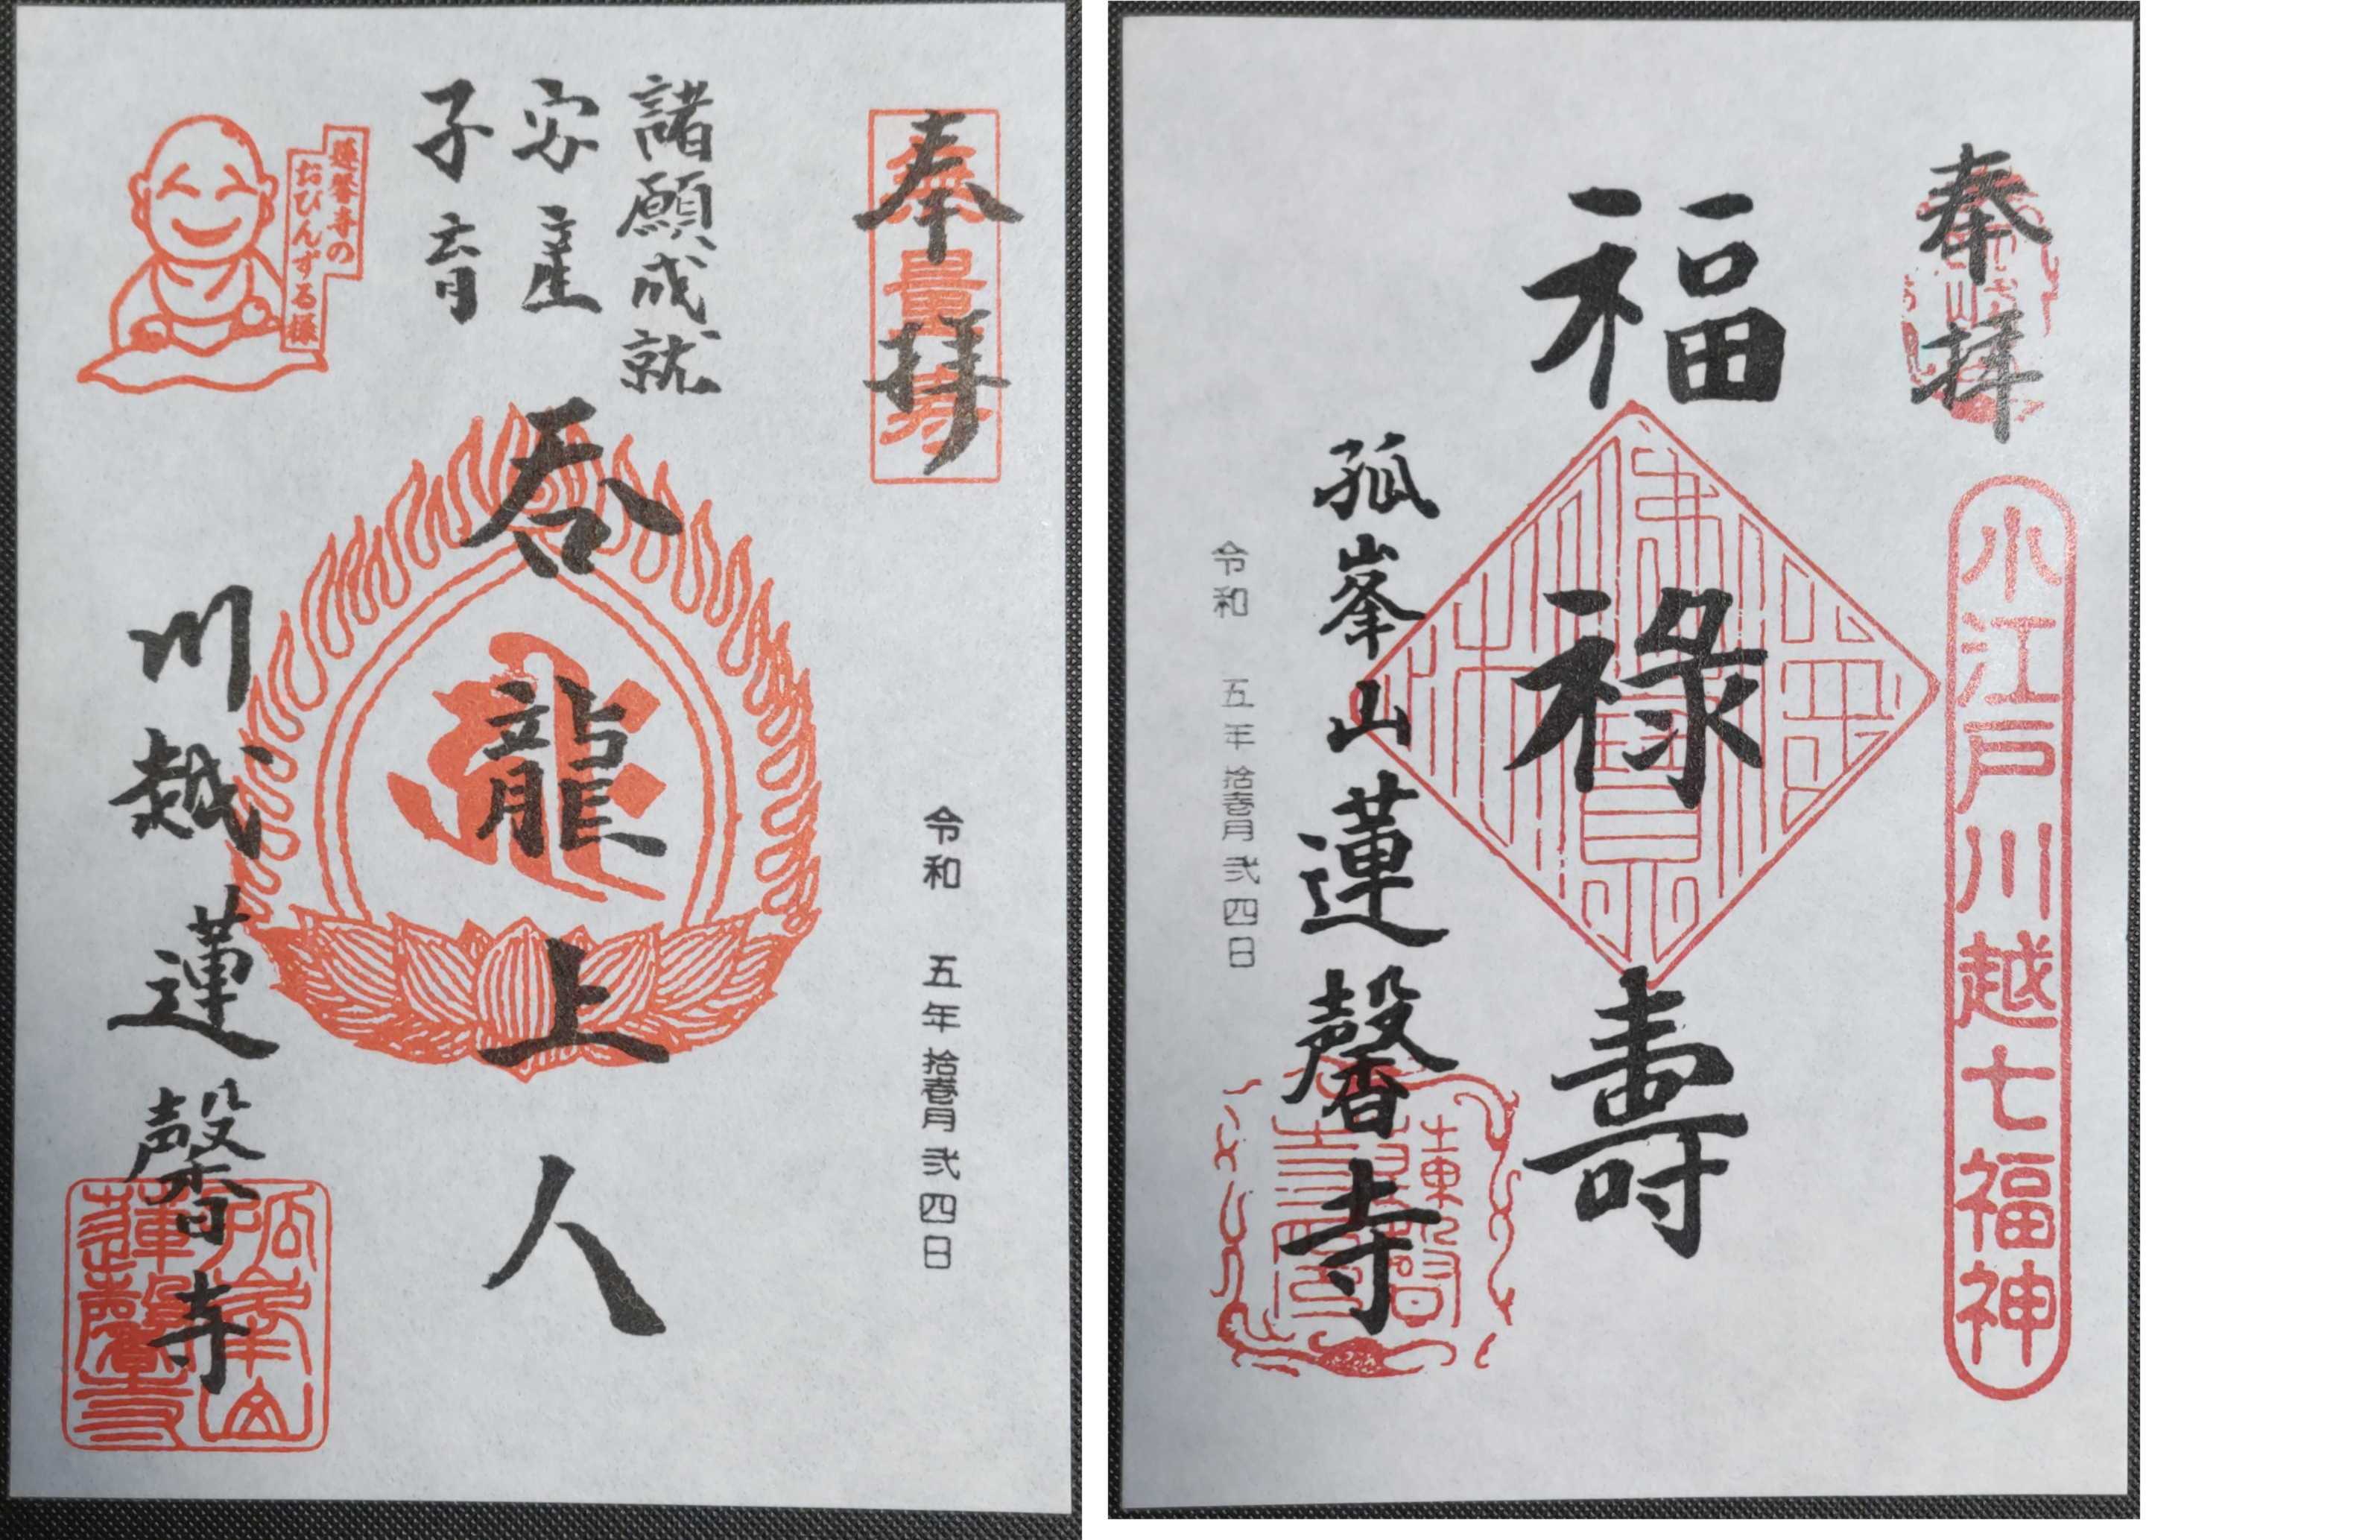 奉拝
無量寿
諸願成就
安産
子育
蓮馨寺の
おびんずる様
呑龍上人
令和 五年 拾壱月 弐四日
川越 蓮馨寺
孤峯山
蓮馨寺
奉拝
小江戸川越七福神
福禄壽
孤峯山蓮馨寺
令和 五年 拾壱月 弐四日